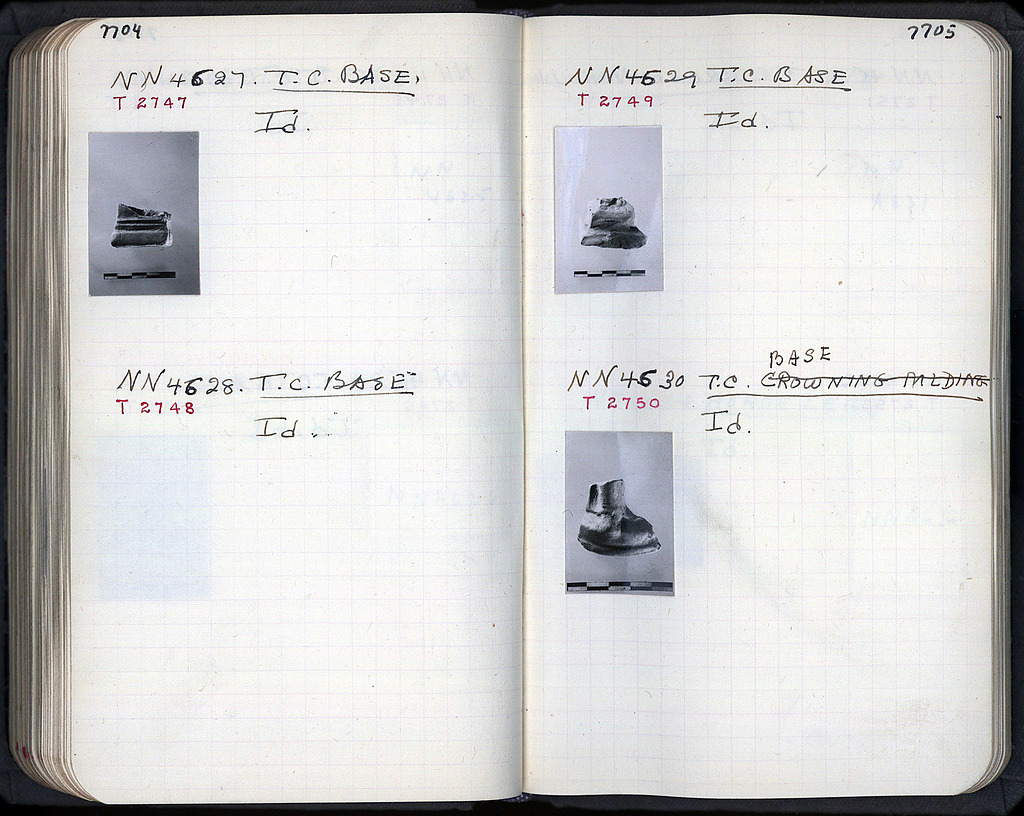 7704
NN 4627. T.C. BASE.
T 2747
Id.
NN 4628. T.C. BASE
T 2748
Id.
7705
NN 4629 T.C. BASE
T 2749
Id.
BASE
NN 4630 T.C. CROWNING MLDING
T 2750
Id.